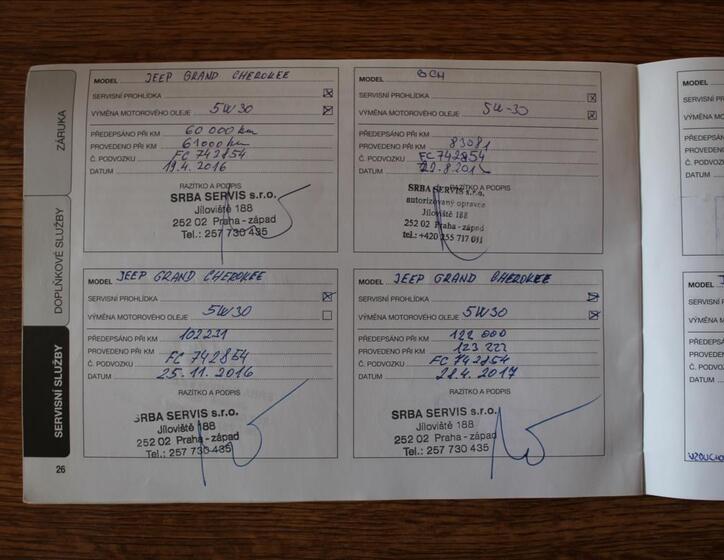 ZÁRUKA
DOPLŇKOVÉ SLUŽBY
SERVISNÍ SLUŽBY
26
MODEL JEEP GRAND CHEROKEE
SERVISNÍ PROHLÍDKA
VÝMĚNA MOTOROVÉHO OLEJE 5W30
PŘEDEPSÁNO PŘI KM 60 000 km
PROVEDENO PŘI KM 61000 km
Č. PODVOZKU FC 742854
DATUM 19.4. 2016
RAZÍTKO A PODPIS
SRBA SERVIS s.r.o.
Jíloviště 188
252 02 Praha - západ
Tel.: 257 730 435
MODEL
SERVISNÍ PROHLÍDKA
VÝMĚNA MOTOROVÉHO OLEJE 5W-30
PŘEDEPSÁNO PŘI KM
PROVEDENO PŘI KM 83081
Č. PODVOZKU FC742854
DATUM
RAZÍTKO A PODPIS
SRBA SERVIS s.r.o.
autorizovaný opravce
Jíloviště 188
252 02 Praha - západ
tel.: +420 255 717 011
MODEL JEEP GRAND CHEROKEE
SERVISNÍ PROHLÍDKA
VÝMĚNA MOTOROVÉHO OLEJE 5W30
PŘEDEPSÁNO PŘI KM 102231
PROVEDENO PŘI KM
Č. PODVOZKU FC 742854
DATUM 25.11.2016
RAZÍTKO A PODPIS
SRBA SERVIS s.r.o.
Jíloviště 188
252 02 Praha - západ
Tel.: 257 730 435
MODEL JEEP GRAND CHEROKEE
SERVISNÍ PROHLÍDKA
VÝMĚNA MOTOROVÉHO OLEJE 5W30
PŘEDEPSÁNO PŘI KM 122 000
PROVEDENO PŘI KM 123 222
Č. PODVOZKU FC 742854
DATUM 28.4. 2017
RAZÍTKO A PODPIS
SRBA SERVIS s.r.o.
Jíloviště 188
252 02 Praha - západ
Tel.: 257 730 435
MODEL
SERVISNÍ
VÝMĚNA
PŘEDEPS
PROVEDEN
Č. PODVOZ
DATUM
MODEL
SERVISNÍ
VÝMĚNA M
PŘEDEPSÁ
PROVEDEN
Č. PODVOZ
DATUM